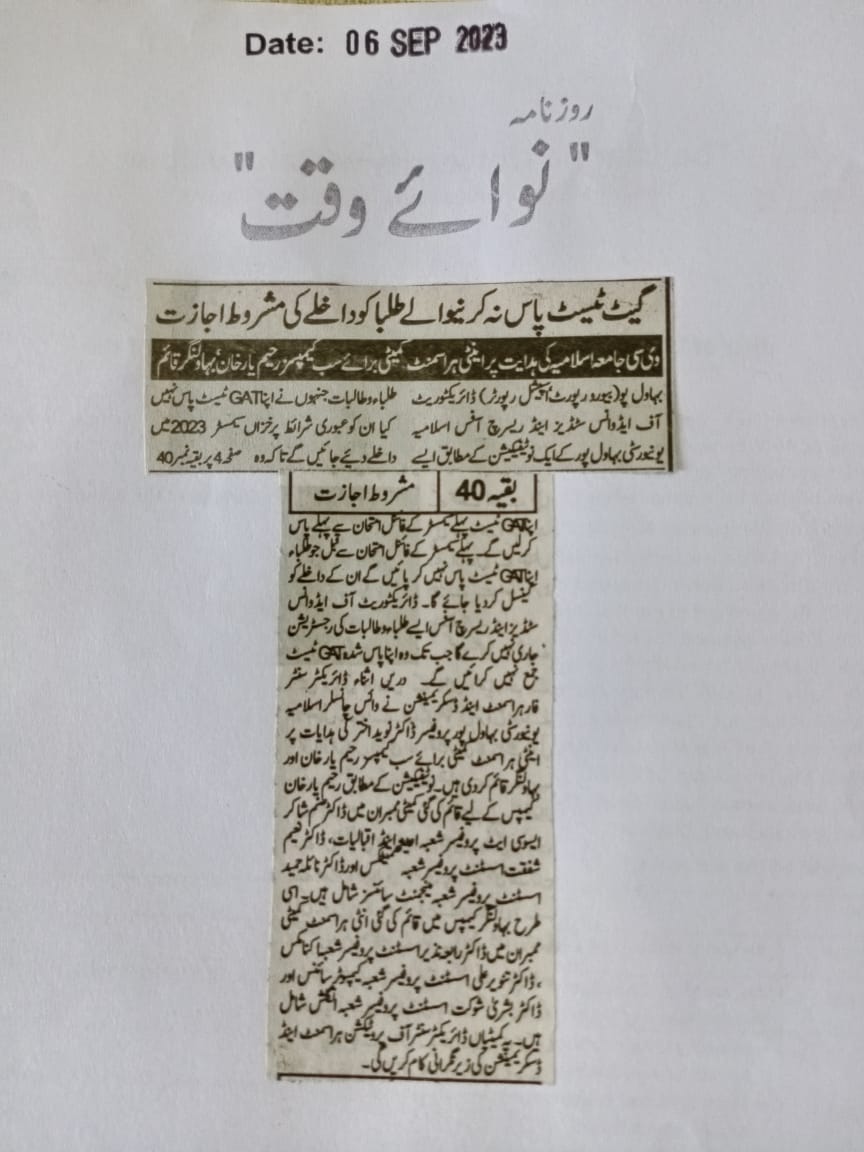 Date: 06 SEP 2023
روزنامہ
"نوائے وقت"
گیٹ ٹیسٹ پاس نہ کرنیوالے طلبا کو داخلے کی مشروط اجازت
وی سی جامعہ اسلامیہ کی ہدایت پر اینٹی ہراسمنٹ کمیٹی برائے سب کیمپسز رحیم یار خان، بہاولنگر قائم
بہاول پور (بیورو رپورٹ، سپیشل رپورٹر) ڈائریکٹوریٹ
آف ایڈوانس سٹڈیز اینڈ ریسرچ آفس اسلامیہ
یونیورسٹی بہاول پور کے ایک نوٹیفکیشن کے مطابق ایسے
طلباء و طالبات جنہوں نے اپنا GAT ٹیسٹ پاس نہیں
کیا ان کو عبوری شرائط پر خزاں سیمسٹر 2023 میں
داخلے دیئے جائیں گے تاکہ وہ صفحہ 4 پر بقیہ نمبر 40
بقیہ 40 مشروط اجازت
اپنا GAT ٹیسٹ پہلے سمسٹر کے فائنل امتحان سے پہلے پاس
کر لیں گے۔ پہلے سمسٹر کے فائنل امتحان سے قبل جو طلباء
اپنا GAT ٹیسٹ پاس نہیں کر پائیں گے ان کے داخلے کو
کینسل کر دیا جائے گا۔ ڈائریکٹوریٹ آف ایڈوانس
سٹڈیز اینڈ ریسرچ آفس ایسے طلباء و طالبات کی رجسٹریشن
جاری نہیں کرے گا جب تک وہ اپنا پاس شدہ GAT ٹیسٹ
جمع نہیں کرائیں گے۔ دریں اثناء ڈائریکٹر سنٹر
فار ہراسمنٹ اینڈ ڈسکریمینشن نے وائس چانسلر اسلامیہ
یونیورسٹی بہاول پور پروفیسر ڈاکٹر نوید اختر کی ہدایات پر
اینٹی ہراسمنٹ کمیٹی برائے سب کیمپسز رحیم یار خان اور
بہاولنگر قائم کر دی ہیں۔ نوٹیفکیشن کے مطابق رحیم یار خان
کیمپس کے لیے قائم کی گئی کمیٹی ممبران میں ڈاکٹر صنم شاکر
ایسوسی ایٹ پروفیسر شعبہ اینڈ اقبالیات، ڈاکٹر نعیم
شفقت اسسٹنٹ پروفیسر شعبہ اور ڈاکٹر نائلہ حمید
اسسٹنٹ پروفیسر شعبہ مینجمنٹ سائنسز شامل ہیں۔ اسی
طرح بہاولنگر کیمپس میں قائم کی گئی انٹی ہراسمنٹ کمیٹی
ممبران میں ڈاکٹر رابعہ نذیر اسسٹنٹ پروفیسر شعبہ اکنامکس
، ڈاکٹر تنویر علی اسسٹنٹ پروفیسر شعبہ کمپیوٹر سائنس اور
ڈاکٹر بشریٰ شوکت اسسٹنٹ پروفیسر شعبہ انگلش شامل
ہیں۔ یہ کمیٹیاں ڈائریکٹر سنٹر آف پروٹیکشن ہراسمنٹ اینڈ
ڈسکریمینشن کی زیر نگرانی کام کریں گی۔